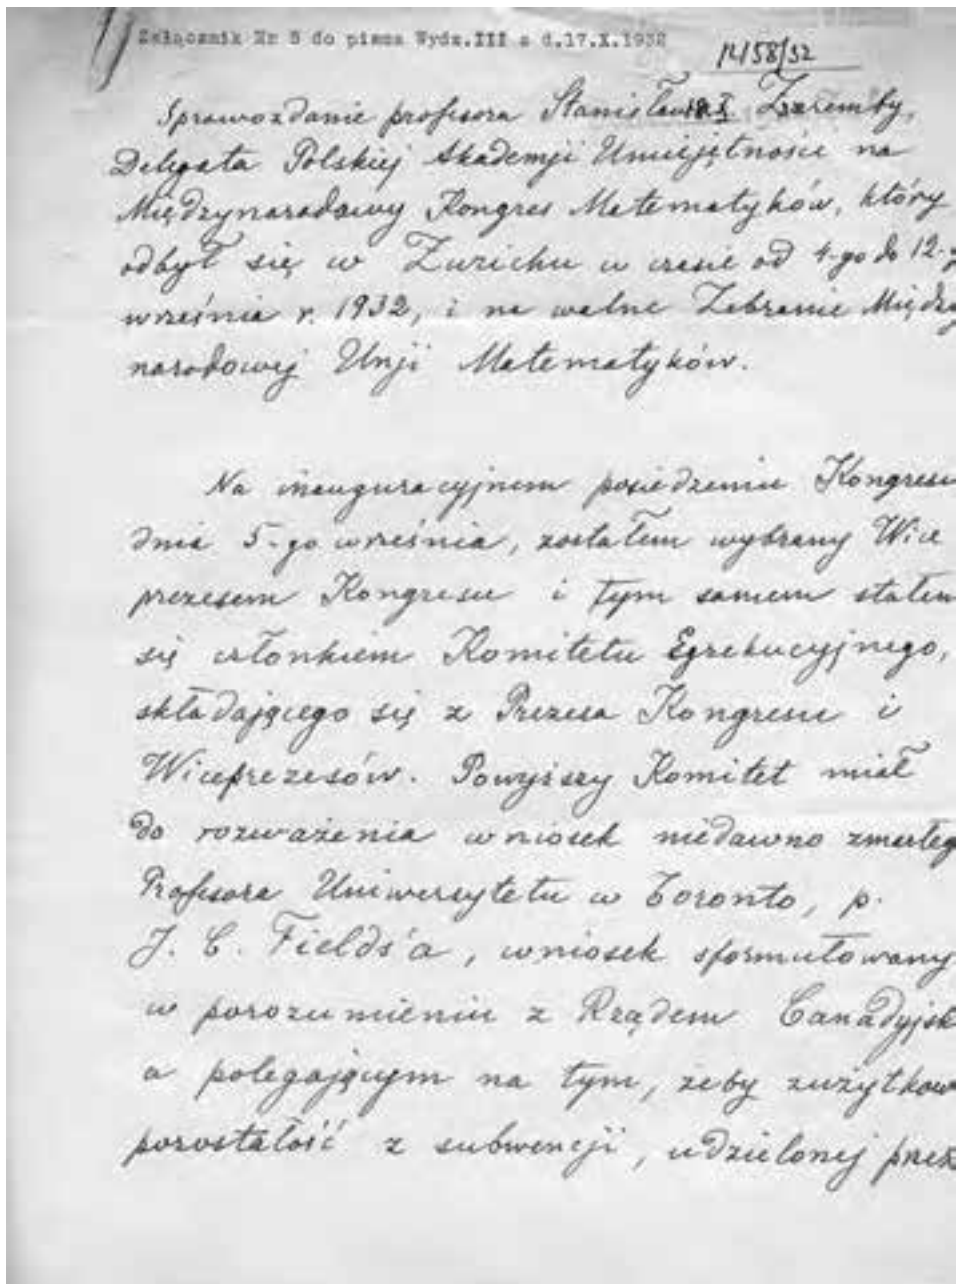 Załącznik Nr 5 do pisma Wydz.III z d.17.X.1932
1458/32
Sprawozdanie profesora Stanisława Zaremby,
Delegata Polskiej Akademji Umiejętności na
Międzynarodowy Kongres Matematyków, który
odbył się w Zurichu w czasie od 4-go do 12-g
września r. 1932, i na walne Zebranie Między
narodowej Unji Matematyków.
Na inauguracyjnem posiedzeniu Kongresu
dnia 5-go września, zostałem wybrany Wice
prezesem Kongresu i tym samem stałem
się członkiem Komitetu Egzekucyjnego,
składającego się z Prezesa Kongresu i
Wiceprezesów. Powyższy Komitet miał
do rozważenia wniosek niedawno zmarłeg
Profesora Uniwersytetu w Toronto, p.
J. C. Fields'a, wniosek sformułowany
w porozumieniu z Rządem Canadyjsk
a polegającym na tym, żeby zużytkow
pozostałość z subwencji, udzielonej przez